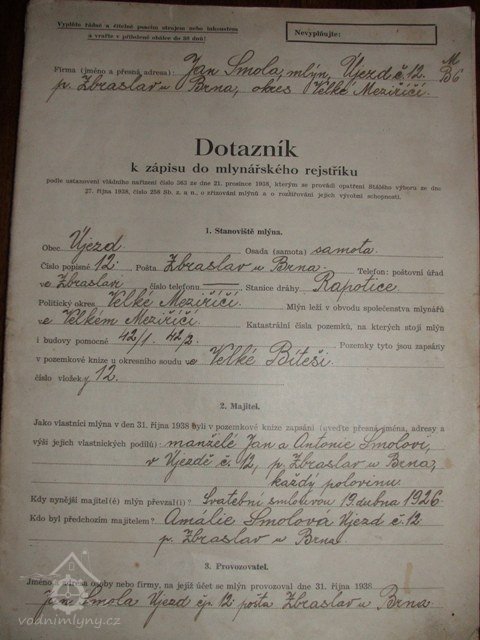 Vyplňte řádně a čitelně psacím strojem nebo inkoustem
a vraťte v přiložené obálce do 30 dnů!
Nevyplňujte:
M
B6
Firma (jméno a přesná adresa): Jan Smola, mlýn, Újezd č. 12.
p. Zbraslav u Brna, okres Velké Meziříčí.
Dotazník
k zápisu do mlynářského rejstříku
podle ustanovení vládního nařízení číslo 363 ze dne 21. prosince 1938, kterým se provádí opatření Stálého výboru ze dne
27. října 1938, číslo 258 Sb. z. a n., o zřizování mlýnů a o rozšiřování jejich výrobní schopnosti.
1. Stanoviště mlýna.
Obec Újezd Osada (samota) samota.
Číslo popisné 12. Pošta Zbraslav u Brna. Telefon: poštovní úřad
ve Zbraslav číslo telefonu Stanice dráhy Rapotice.
Politický okres Velké Meziříčí. Mlýn leží v obvodu společenstva mlynářů
ve Velkém Meziříčí. Katastrální čísla pozemků, na kterých stojí mlýn
i budovy pomocné 42/1. 42/2. Pozemky tyto jsou zapsány
v pozemkové knize u okresního soudu ve Velké Bíteši.
číslo vložek y 12.
2. Majitel.
Jako vlastníci mlýna v den 31. října 1938 byli v pozemkové knize zapsáni (uveďte přesná jména, adresy a
výši jejich vlastnických podílů): manželé Jan a Antonie Smolovi,
v Újezdě č. 12, p. Zbraslav u Brna,
každý polovinu.
Kdy nynější majitel(é) mlýn převzal(i)? Svatební smlouvou 19. dubna 1926.
Kdo byl předchozím majitelem? Amálie Smolova Újezd č. 12
p. Zbraslav u Brna.
3. Provozovatel.
Jméno a adresa osoby nebo firmy, na jejíž účet se mlýn provozoval dne 31. října 1938.
Jan Smola Újezd čp. 12 pošta Zbraslav u Brna
vodnimlyny.cz